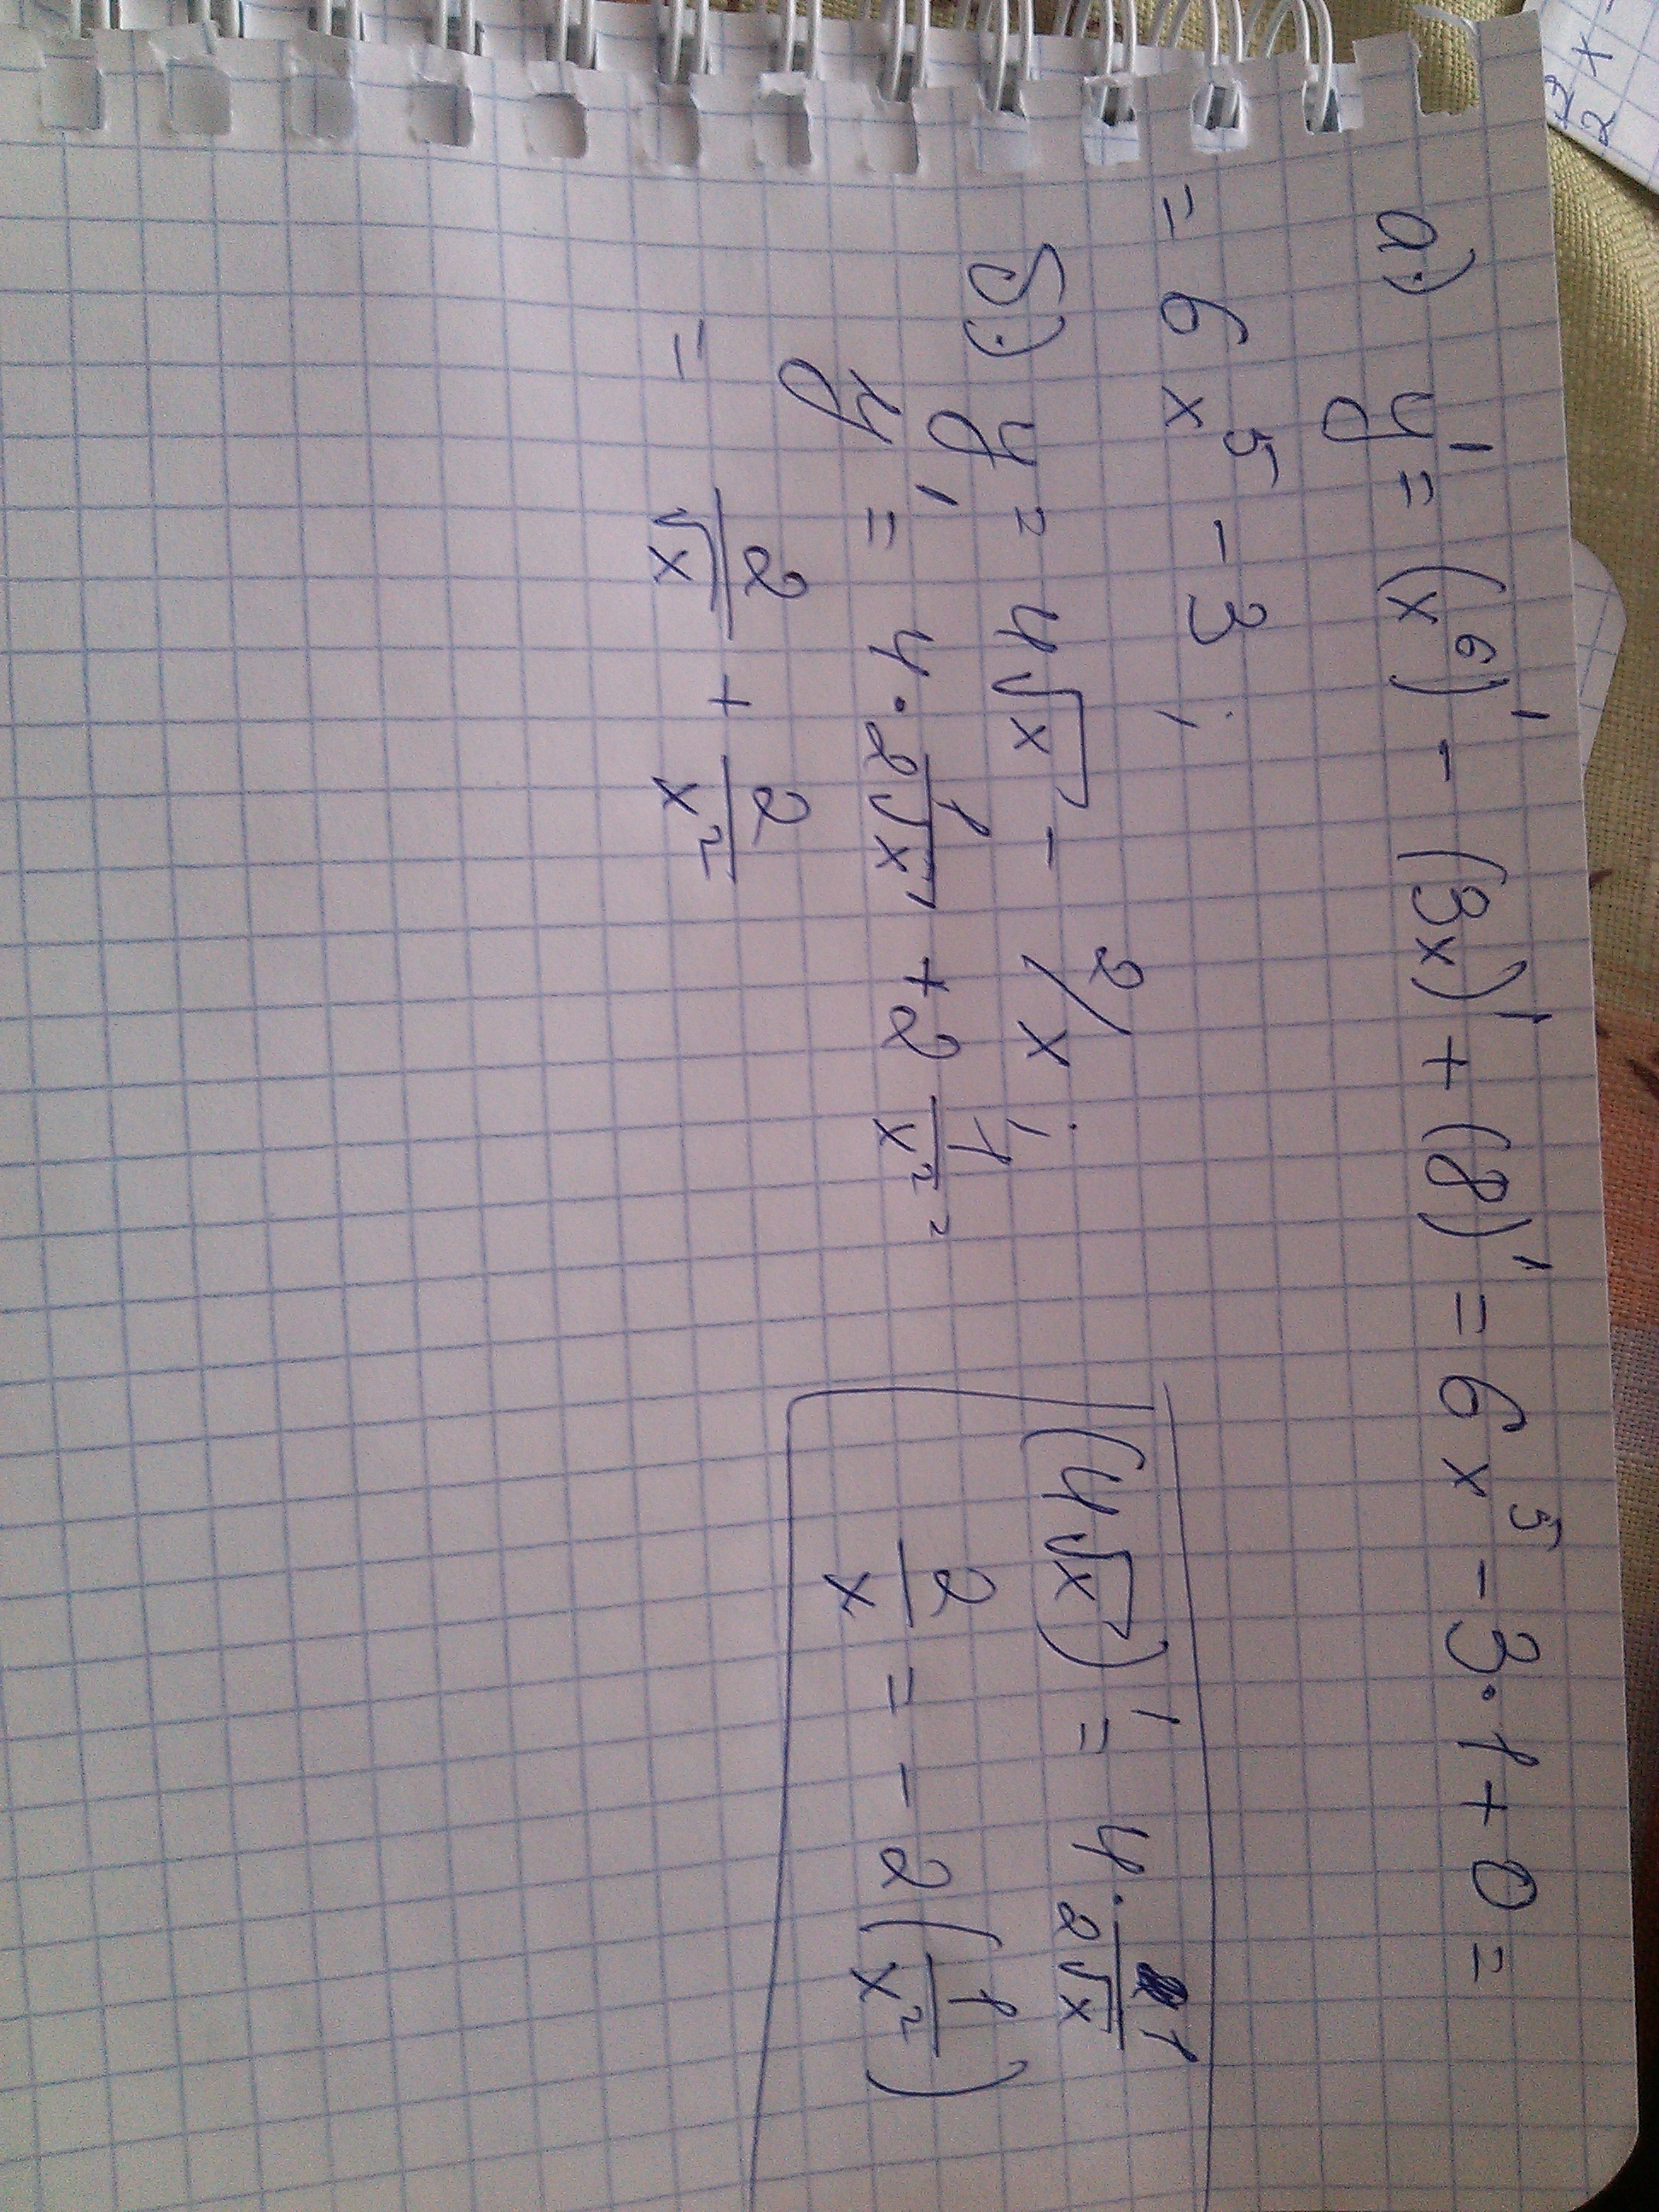 a) y' = (x⁶)' - (3x)' + (8)' = 6x⁵ - 3·1 + 0 =
= 6x⁵ - 3 ;
б) y = 4√x - 2/x ;
y' = 4 · 1/(2√x) + 2 1/x² =
= 2/√x + 2/x²
(4√x)' = 4 · 1/(2√x)
2/x = - 2(1/x²)
x
7/2